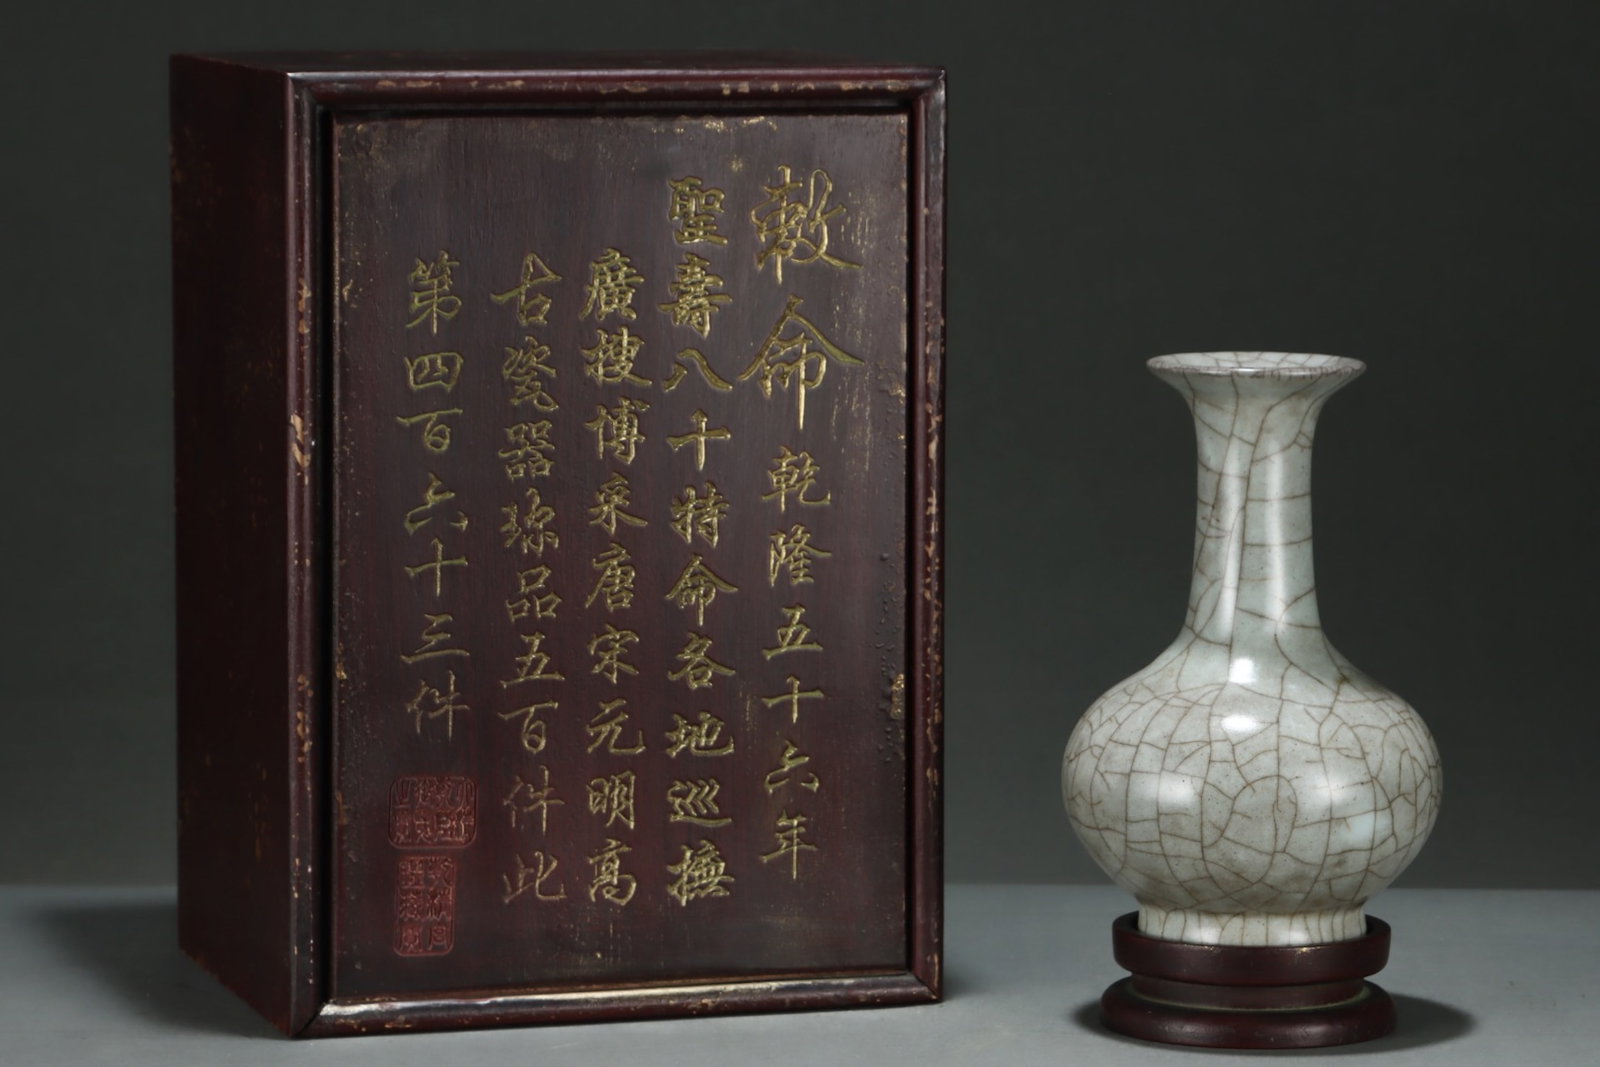 敕命乾隆五十六年
聖壽八十特命各地巡撫
廣搜博采唐宋元明高
古瓷器珎品五百件此
第四百六十三件